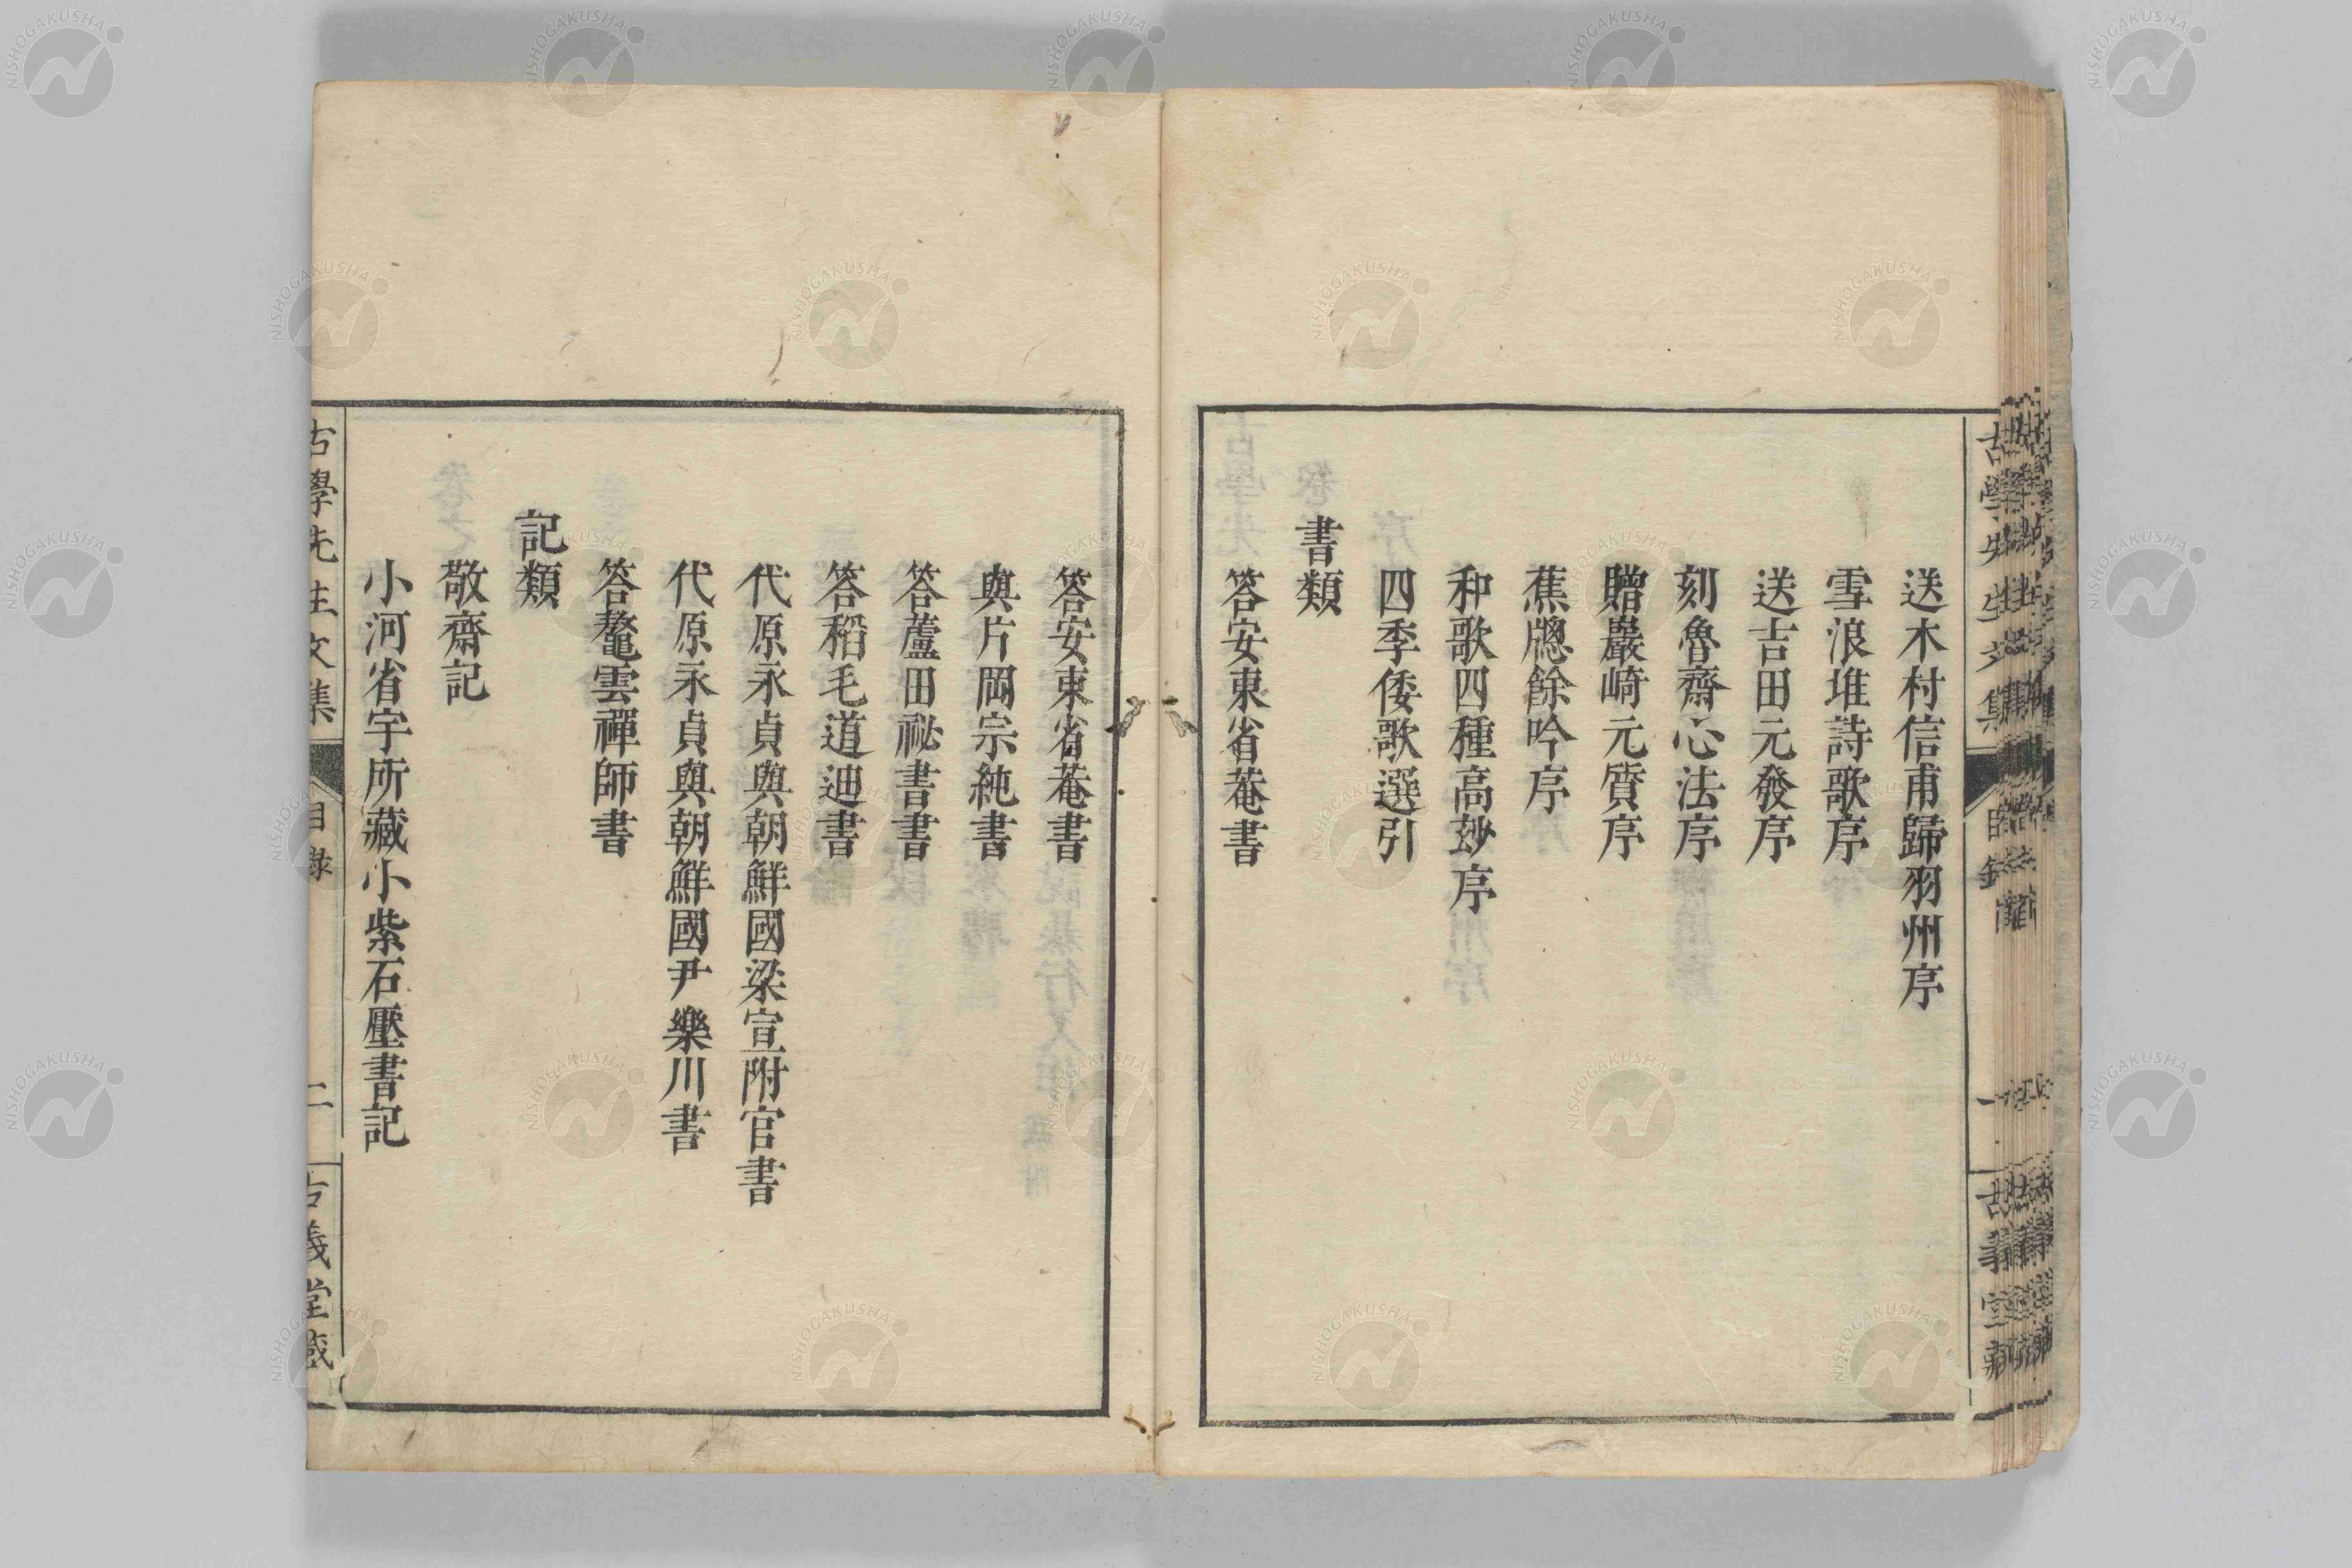 送木村信甫歸羽州序
雪浪堆詩歌序
送吉田元發序
刻魯齋心法序
贈巖崎元質序
蕉牕餘吟序
和歌四種高玅序
四季倭歌選引
書類
答安東省菴書
答安東省菴書
與片岡宗純書
答蘆田祕書書
答稻毛道迪書
代原永貞與朝鮮國梁宣附官書
代原永貞與朝鮮國尹樂川書
答鼇雲禪師書
記類
敬齋記
小河省宇所藏小紫石壓書記
古學先生文集
目錄
二
古義堂藏
NISHOGAKUSHA